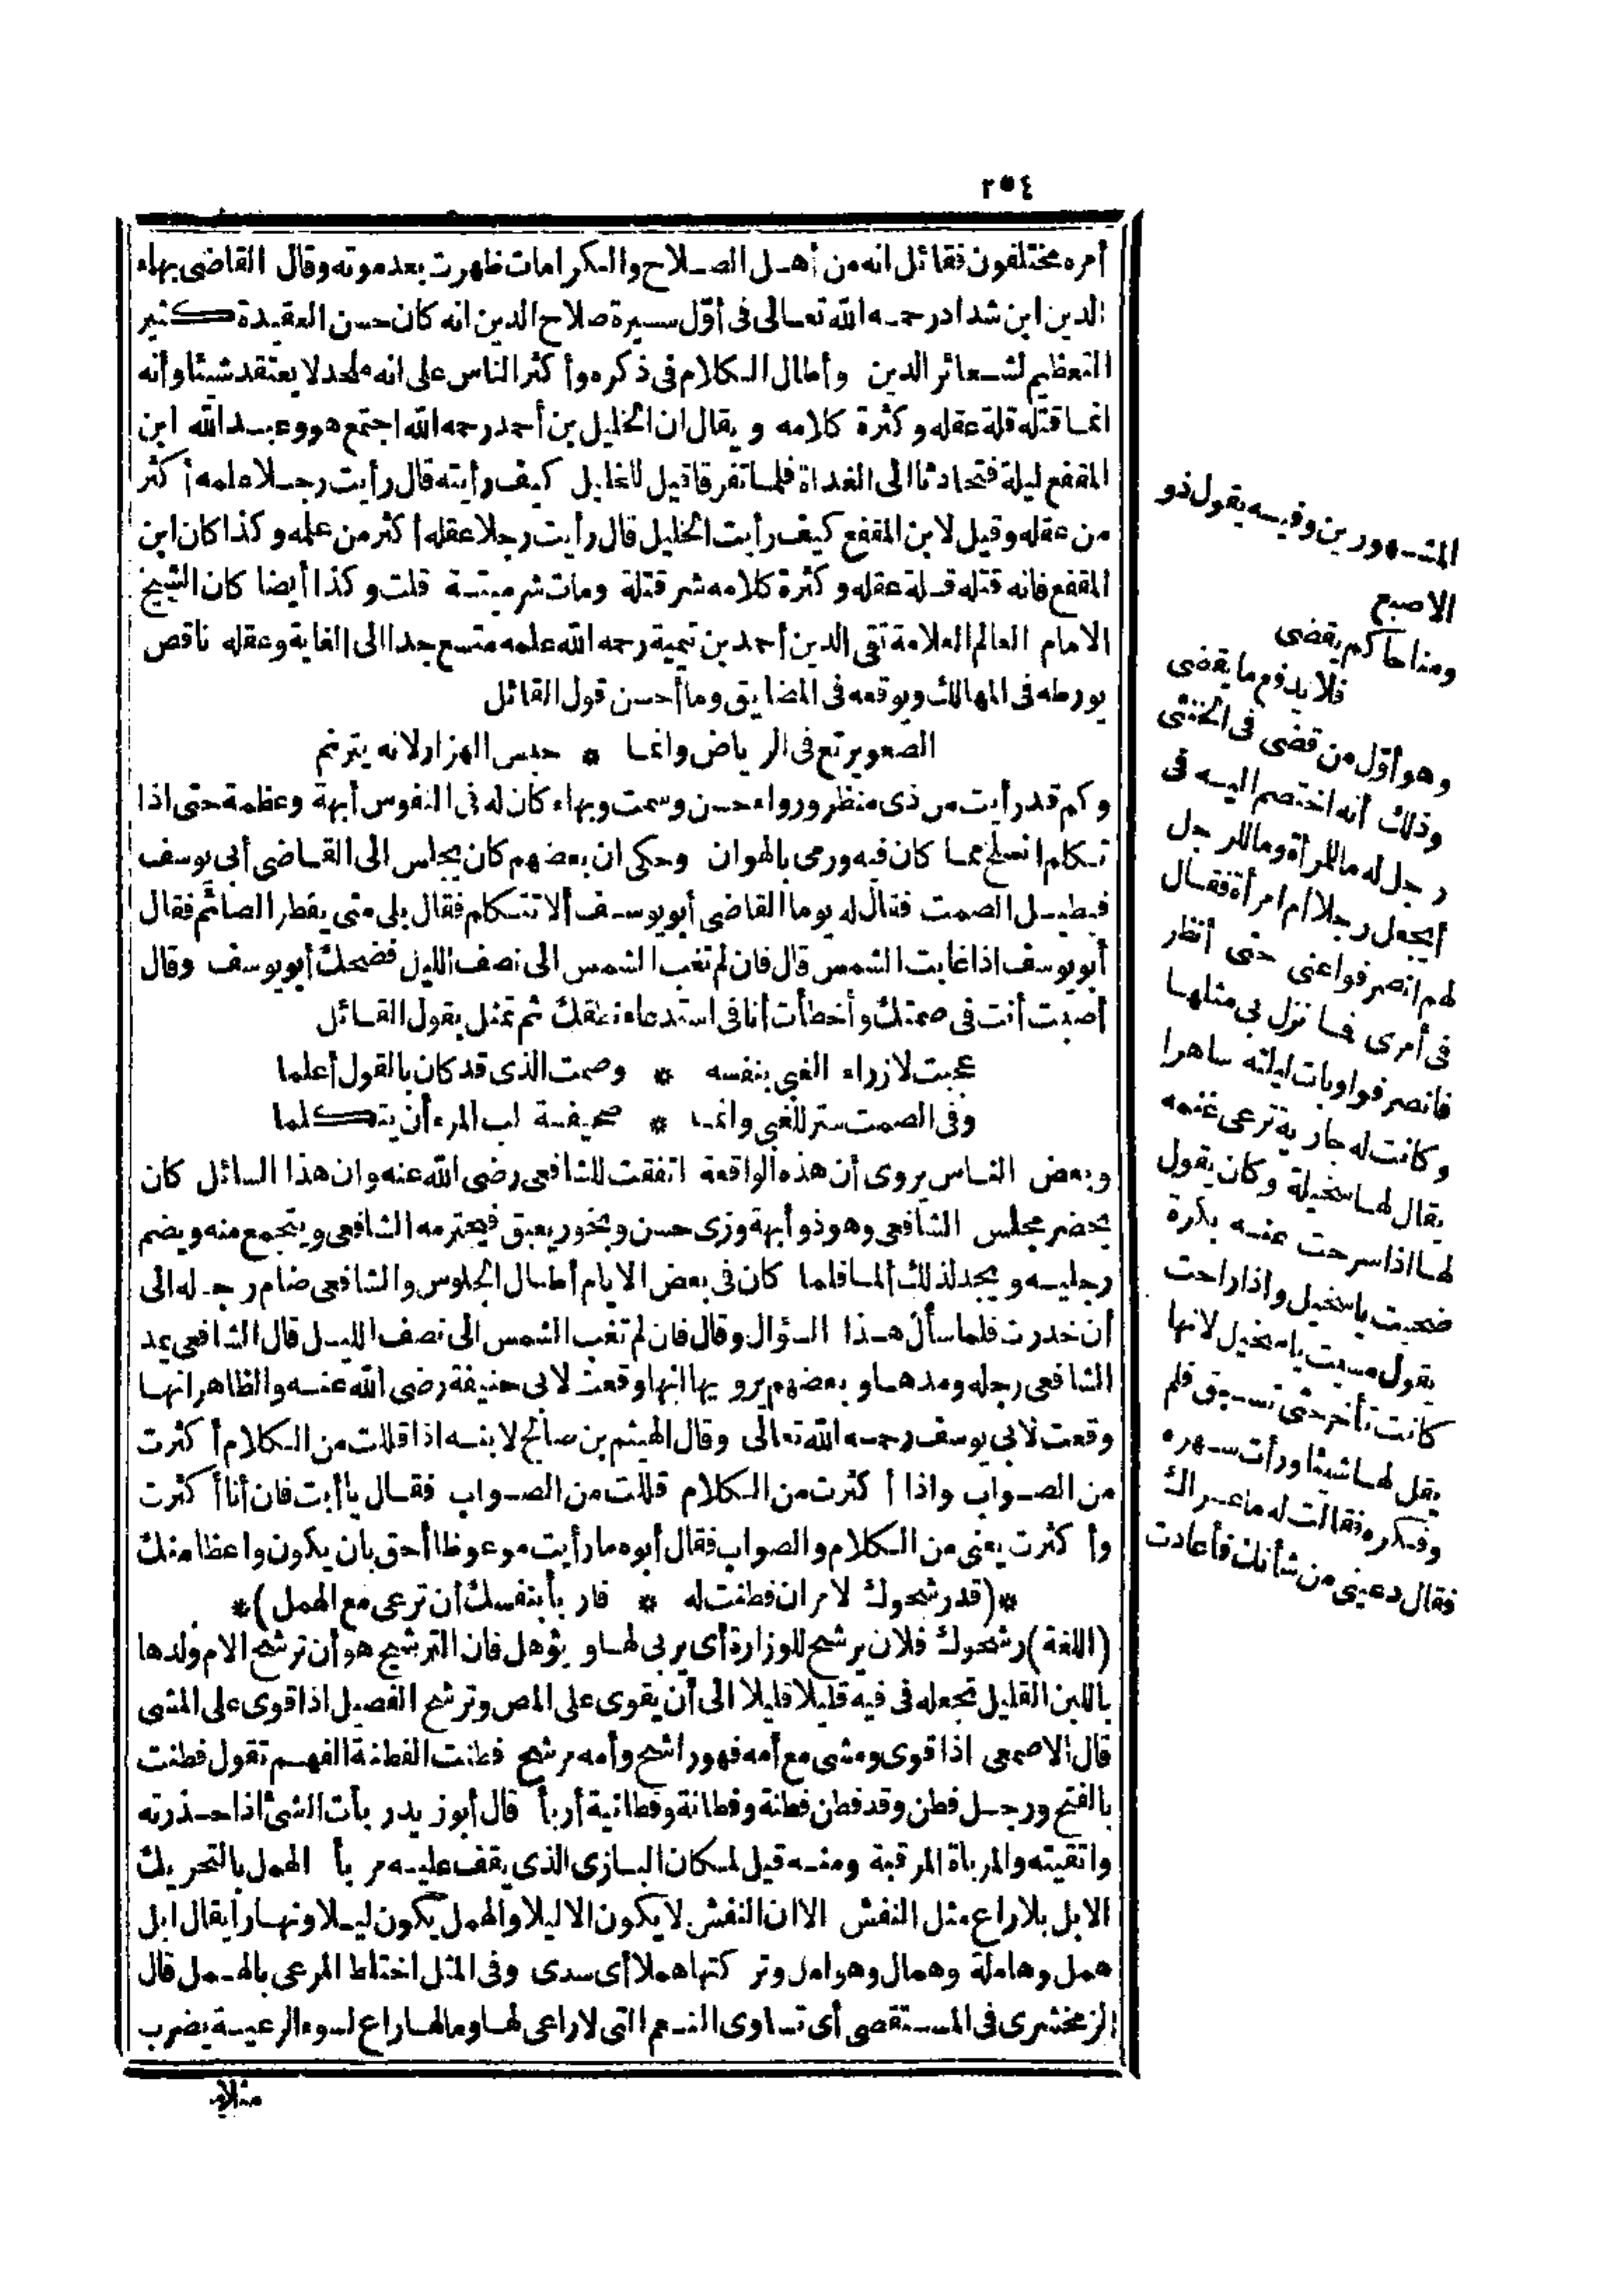 ٢٥٤
أمره مختلفون فقائل انه من أهل الصلاح والكرامات ظهرت بعد موته وقال القاضى بهاء
الدين ابن شداد رحمه الله تعالى فى أوّل سيرة صلاح الدين انه كان حسن العقيدة كثير
التعظيم لشعائر الدين وأطال الكلام فى ذكره وأكثر الناس على انه ملحد لا يعتقد شيئا وأنه
انما قتله قلة عقله وكثرة كلامه ويقال ان الخليل بن أحمد رحمه الله اجتمع هو وعبد الله ابن
المقفع ليلة فتحادثا الى الغداة فلما تفرقا قيل للخليل كيف رأيته قال رأيت رجلا علمه أكثر
من عقله وقيل لابن المقفع كيف رأيت الخليل قال رأيت رجلا عقله أكثر من علمه وكذا كان ابن
المقفع فانه قتله قلة عقله وكثرة كلامه شر قتلة ومات شر ميتة قلت وكذا أيضا كان الشيخ
الامام العالم العلامة تقى الدين أحمد بن تيمية رحمه الله علمه متسع جدا الى الغاية وعقله ناقص
يورطه فى المهالك ويوقعه فى المضايق وما أحسن قول القائل
الصعو يرتع فى الرياض وانما * حبس الهزار لانه يترنم
وكم قدر رأيت من ذى منظر ورواء حسن وسمت وبهاء كان له فى النفوس أبهة وعظمة حتى اذا
تكلم انسلخ مما كان فيه ورمى بالهوان وحكى ان بعضهم كان يجلس الى القاضى أبى يوسف
فيطيل الصمت فقال له يوما القاضى أبو يوسف ألا تتكلم فقال بلى متى يفطر الصائم فقال
أبو يوسف اذا غابت الشمس قال فان لم تغب الشمس الى نصف الليل فضحك أبو يوسف وقال
أصبت أنت فى صمتك وأخطأت أنا فى استدعاء نطقك ثم تمثل بقول القائل
عجبت لازراء الغبى بنفسه * وصمت الذى قد كان بالقول أعلما
وفى الصمت ستر للغبى وانما * صحيفة لب المرء أن يتكلما
وبعض الناس يروى أن هذه الواقعة اتفقت للشافعى رضى الله عنه وان هذا السائل كان
يحضر مجلس الشافعى وهو ذو أبهة وزى حسن وبخور يعبق فيحترمه الشافعى ويتجمع منه ويضم
رجليه ويجد لذلك ألما فلما كان فى بعض الايام أطال الجلوس والشافعى ضام رجله الى
أن خدرت فلما سأل هذا السؤال وقال فان لم تغب الشمس الى نصف الليل قال الشافعى يمد
الشافعى رجله ومدها وبعضهم يرويها انها وقعت لابى حنيفة رضى الله عنه والظاهر انها
وقعت لابى يوسف رحمه الله تعالى وقال الهيثم بن صالح لابنه اذا قللت من الكلام أكثرت
من الصواب واذا أكثرت من الكلام قللت من الصواب فقال يا أبت فان أنا أكثرت
وأكثرت يعنى من الكلام والصواب فقال أبوه ما رأيت موعوظا أحق بان يكون واعظا منك
*(قد رشحوك لامر ان فطنت له * فاربأ بنفسك أن ترعى مع الهمل)*
(اللغة) رشحوك فلان يرشح للوزارة أى يربى لها ويؤهل فان الترشيح هو أن ترشح الام ولدها
باللبن القليل تجعله فى فيه قليلا قليلا الى أن يقوى على المص وترشح الفصيل اذا قوى على المشى
قال الاصمعى اذا قوى ومشى مع أمه فهو راشح وأمه مرشح فطنت الفطنة الفهم تقول فطنت
بالفتح ورجل فطن وقد فطن فطنة وفطانة وفطانية أربأ قال أبو زيد ربأت الشئ اذا حذرته
واتقيته والمربأة المرقبة ومنه قيل لمكان البازى الذى يقف عليه مربأ الهمل بالتحريك
الابل بلا راع مثل النفش الا ان النفش لا يكون الا ليلا والهمل يكون ليلا ونهارا يقال ابل
همل وهاملة وهمال وهوامل وتركتها هملا أى سدى وفى المثل اختلط المرعى بالهمل قال
الزمخشرى فى المستقصى أى تساوى النعم التى لا راعى لها وما لها راع لسوء الرعية يضرب
مثلا
المشهورين وفيه يقول ذو
الاصبع
ومنا حاكم يقضى
فلا يدفع ما يقضى
وهو أوّل من قضى فى الخنثى
وذلك أنه اختصم اليه فى
رجل له ما للمرأة وما للرجل
أيجعل رجلا أم امرأة فقال
لهم انصرفوا عنى حتى أنظر
فى أمرى فما نزل بى مثلها
فانصرفوا وبات ليلته ساهرا
وكانت له جارية ترعى غنمه
يقال لها سخيلة وكان يقول
لها اذا سرحت عنه بكرة
ضحيت يا سخيل واذا راحت
يقول مسيت يا سخيل لانها
كانت تأخر حتى تسبق فلم
يقل لها شيئا ورأت سهره
وفكره فقالت له ما عراك
فقال دعينى من شأنك فأعادت